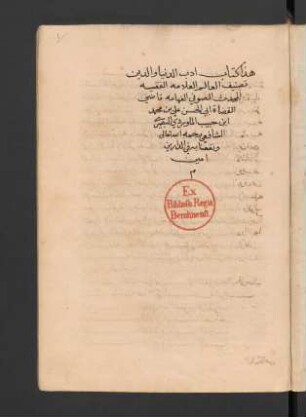 هذا كتاب ادب الدنيا والدين
تصنيف العالم العلامه الفقيه
المحدث الصوفي الفهامه قاضي
القضاة ابي الحسن علي بن محمد
ابن حبيب الماوردي البصري
الشافعي رحمه الله تعالى
ونفعنا به في الدارين
امين
م
Ex
Biblioth. Regia
Berolinensi.